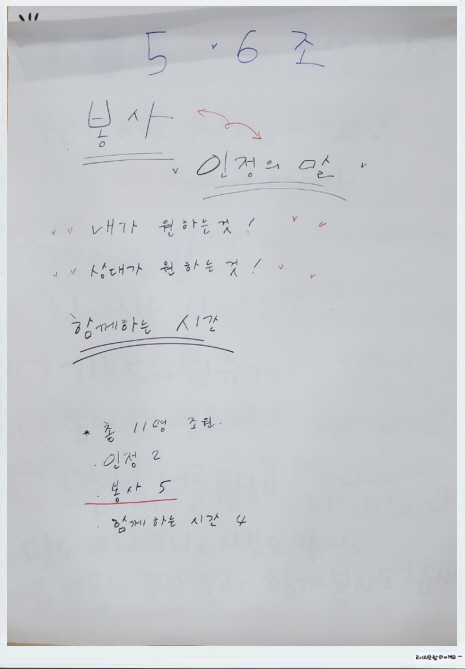 5 · 6 조
봉사
인정의 말
내가 원하는것!
상대가 원하는 것!
함께하는 시간
* 총 11명 조원.
· 인정 2
· 봉사 5
· 함께하는 시간 4